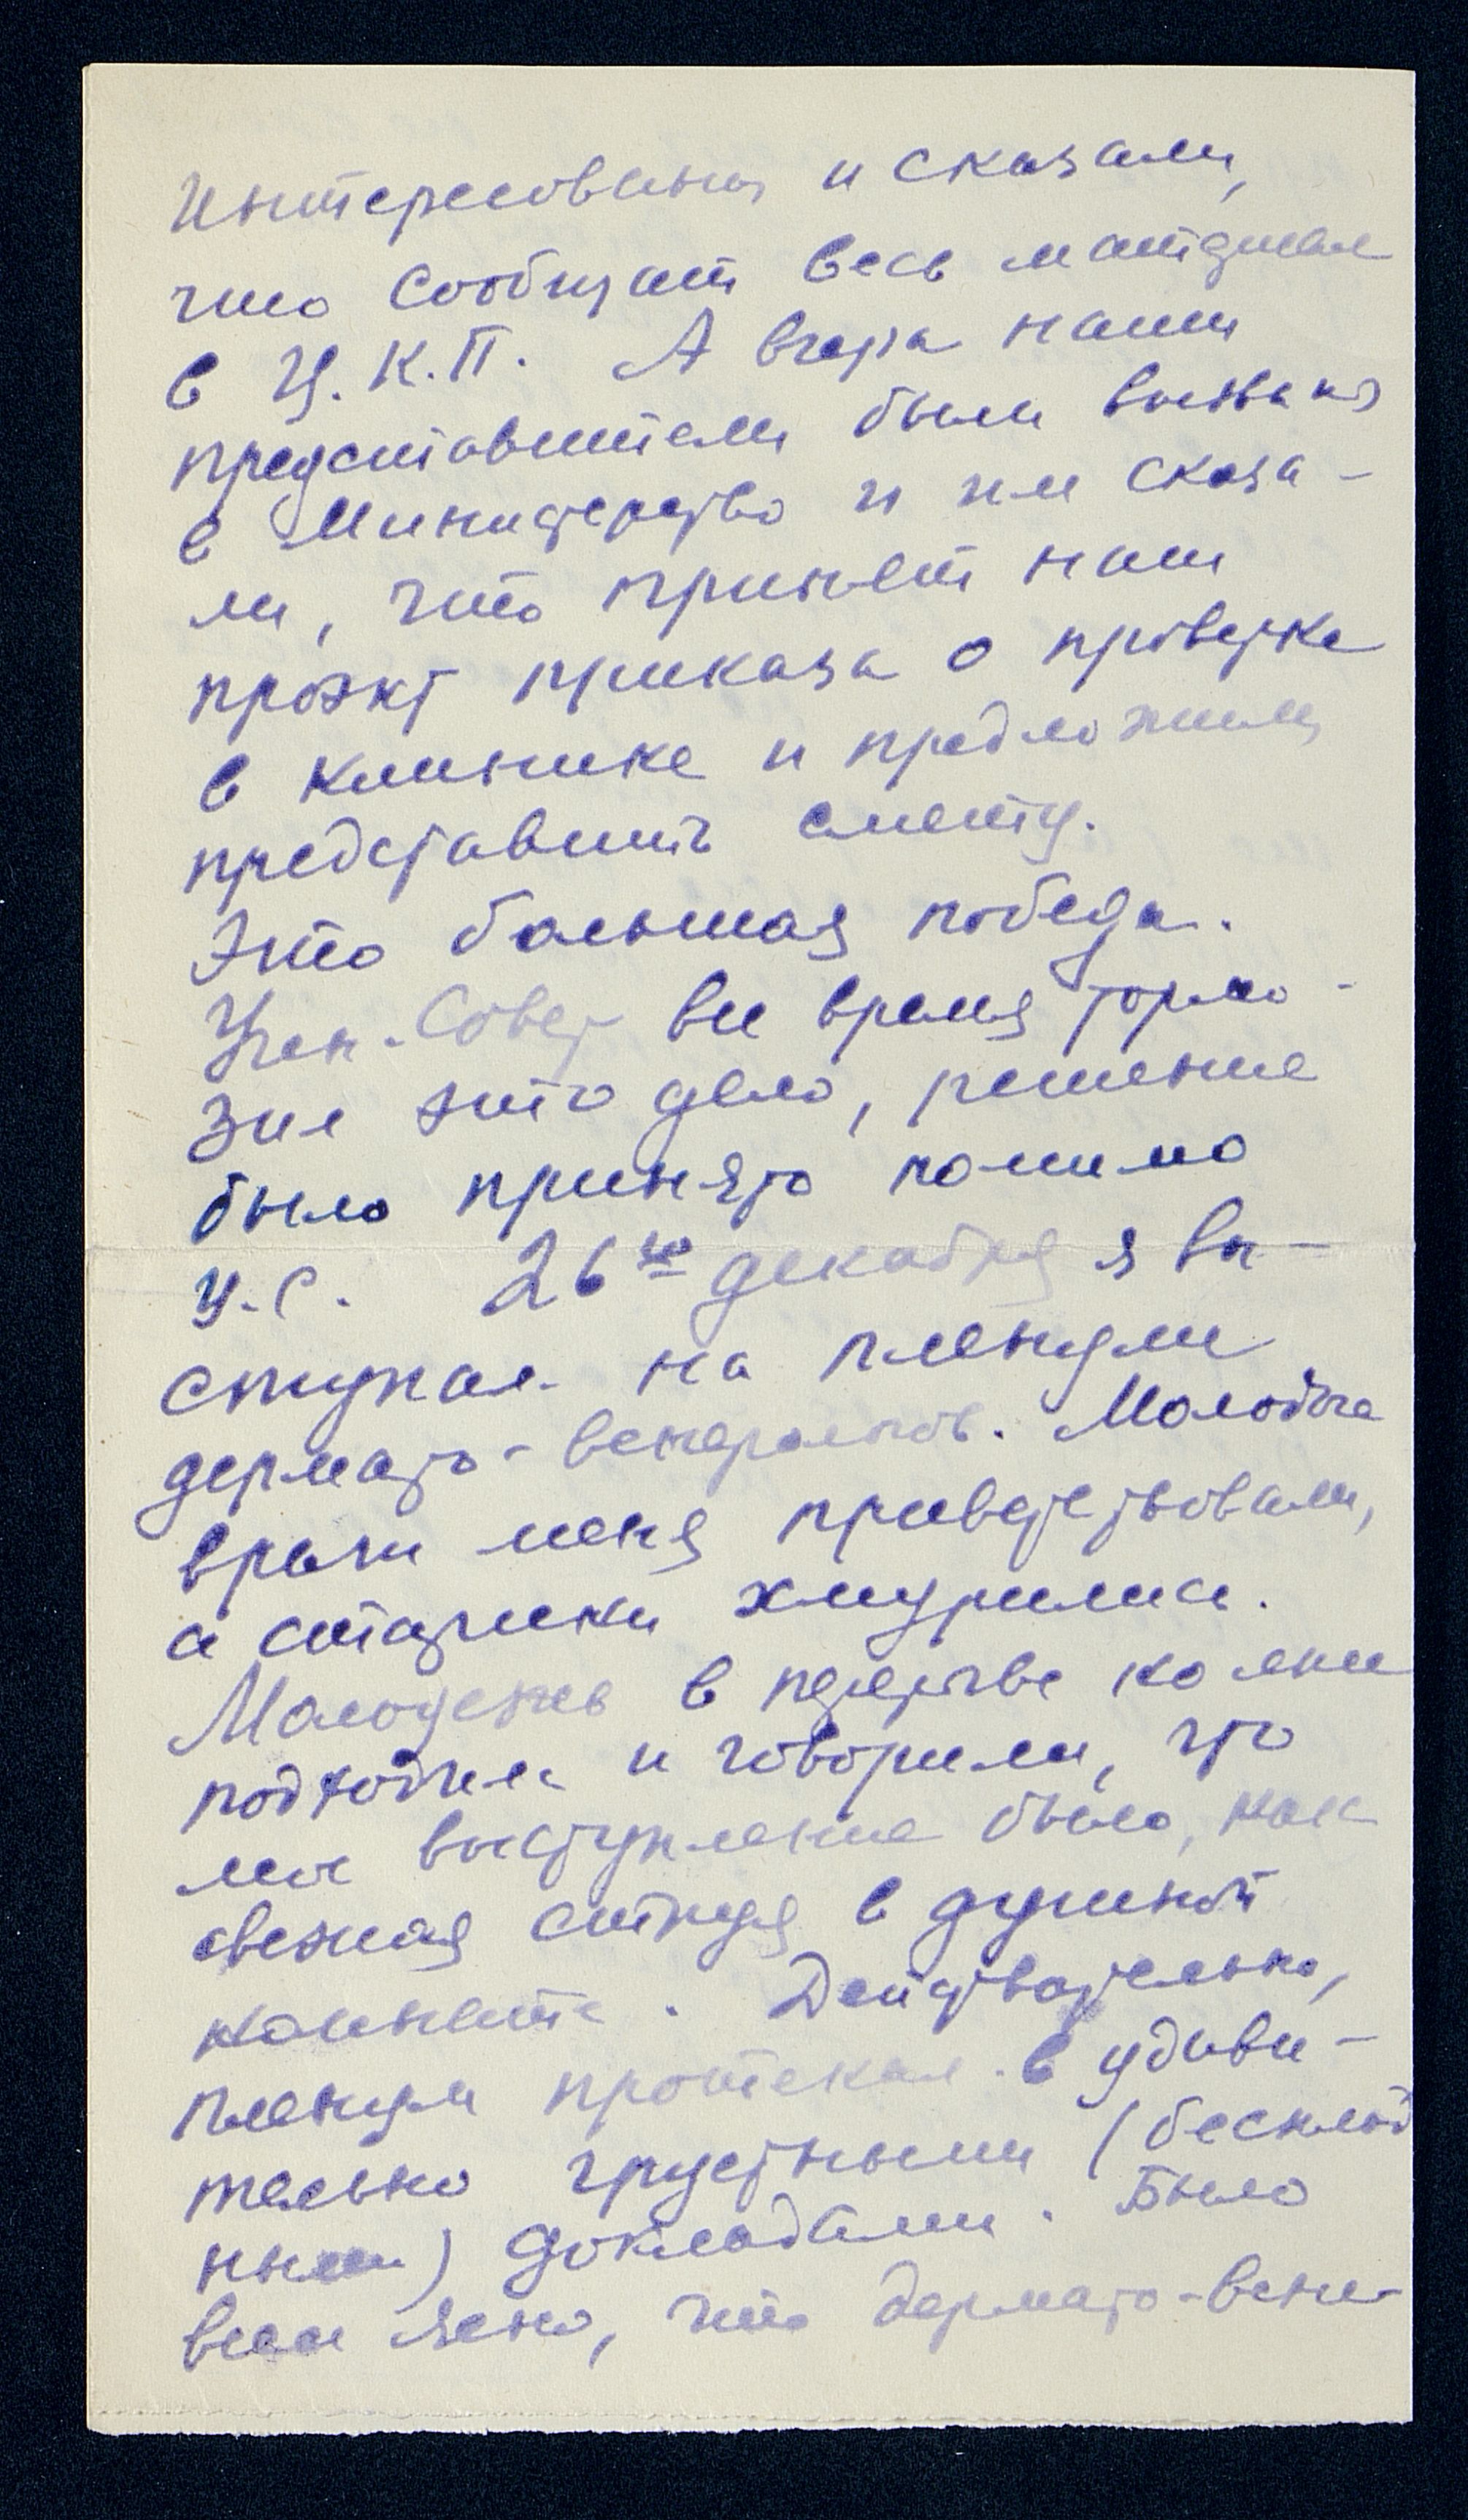 интересованы и сказали,
что сообщат весь материал
в Ц.К.П. А вчера наши
представители были вызваны
в Министерство и им сказа-
ли, что принят наш
проэкт приказа о проверке
в клинике и предложили
представить смету.
Это большая победа.
Учен. Совет все время тормо-
зил это дело, решение
было принято помимо
У.С. 26го декабря я вы-
ступал на пленуме
дермато-венерологов. Молодые
врачи меня приветствовали,
а старички хмурились.
Молодежь в перерыве ко мне
подходила и говорили, что
мое выступление было, как
свежая струя в душной
комнате. Действительно,
пленум протекал с удиви-
тельно грустными (бесплод
ными) докладами. Было
всем ясно, что дермато-вене-